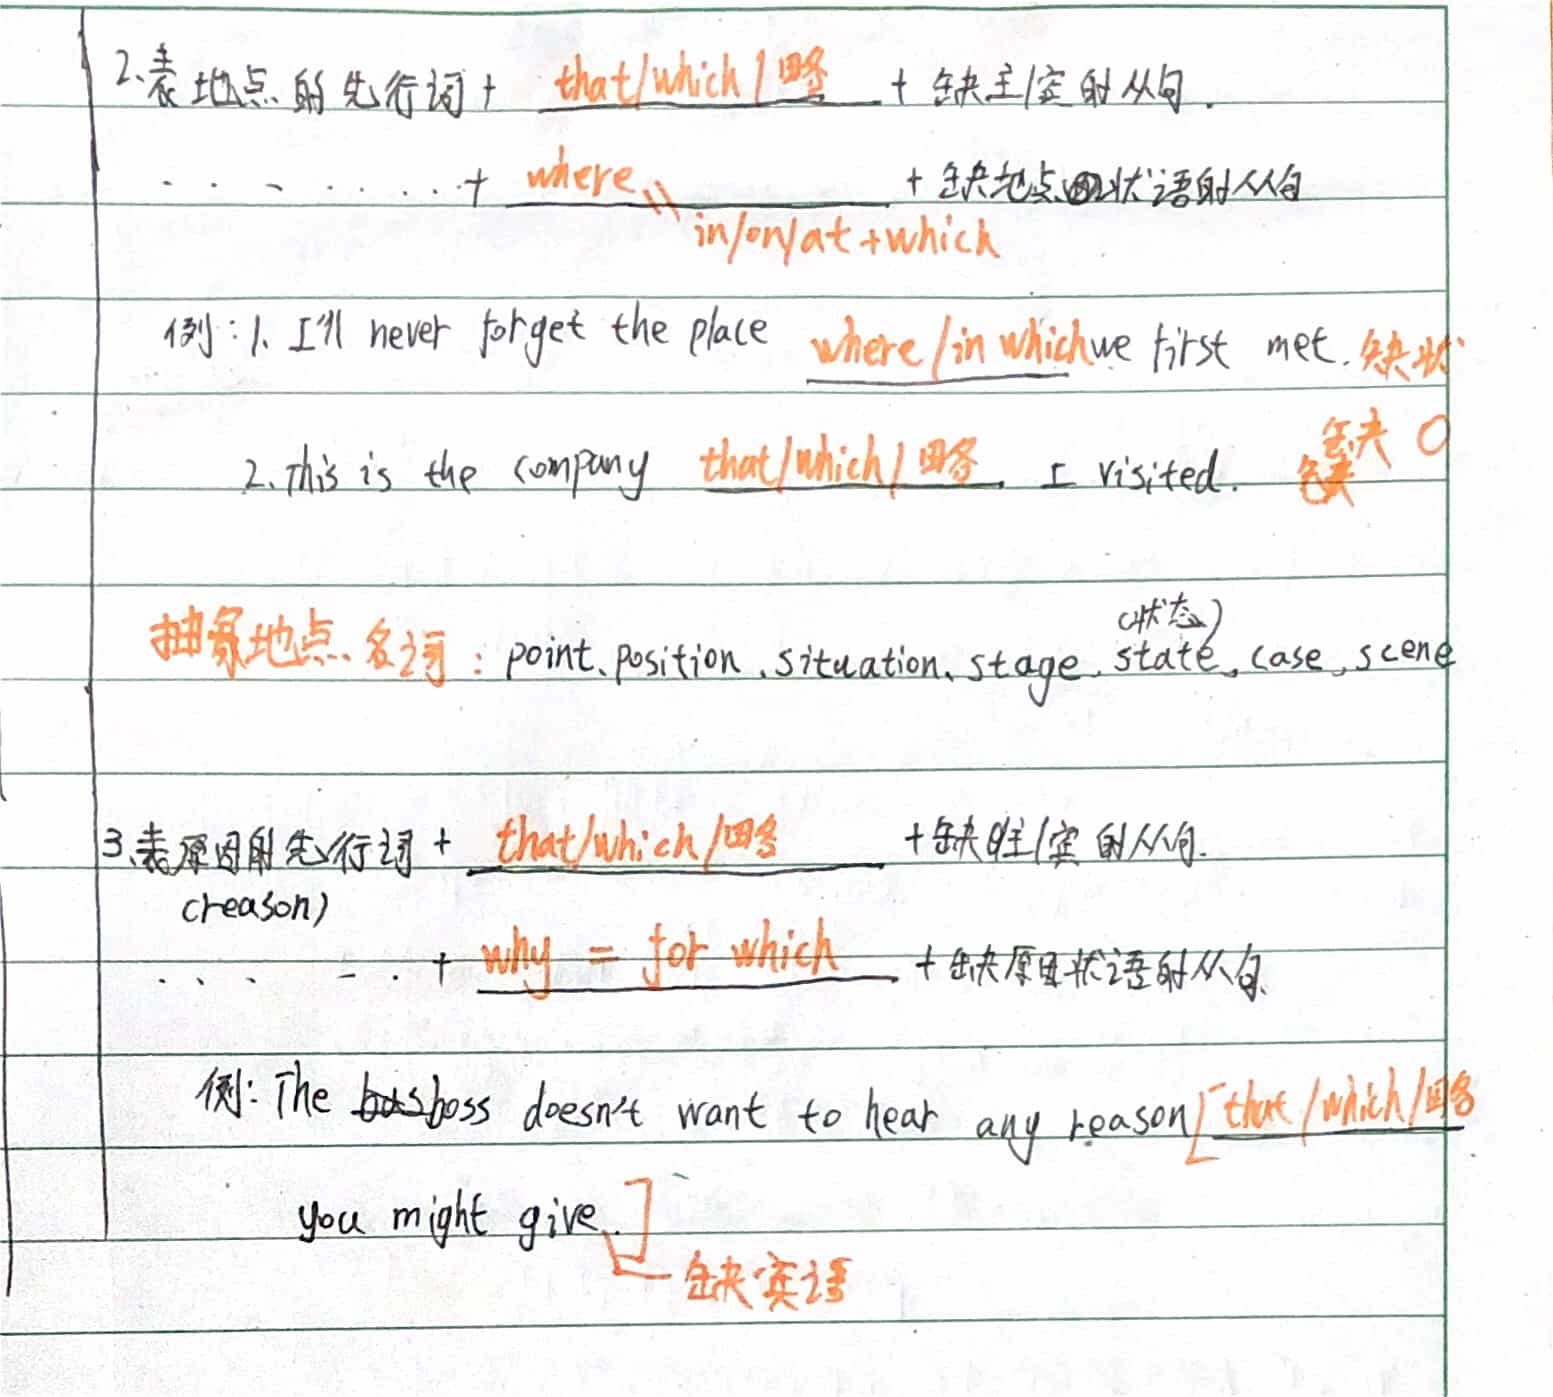 2、表地点的先行词 + that/which/略 + 缺主/宾的从句.
. . . . . . . . + where + 缺地点状语的从句
\\ in/on/at+which
例: 1、I'll never forget the place where/in which we first met. 缺状
2、This is the company that/which/略 I visited. 缺 O
(状态)
抽象地点名词: point、position、situation、stage、state、case、scene
3、表原因的先行词 + that/which/略 + 缺主/宾的从句.
(reason)
. . . . . . + why = for which + 缺原因状语的从句.
例: The boss doesn't want to hear any reason [that/which/略
you might give.]
缺宾语